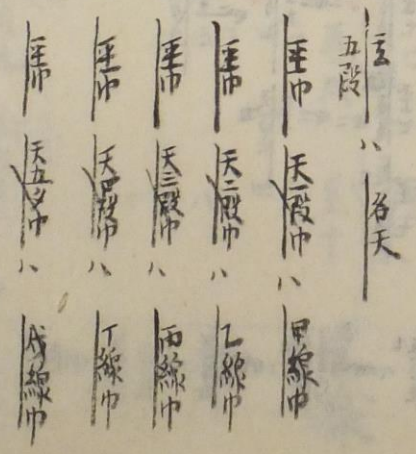 玄
五段
ハ 名天
巾 天一段巾 ハ 甲線巾
巾 天二段巾 ハ 乙線巾
巾 天三段巾 ハ 丙線巾
巾 天四段巾 ハ 丁線巾
巾 天五巾 ハ 戊線巾